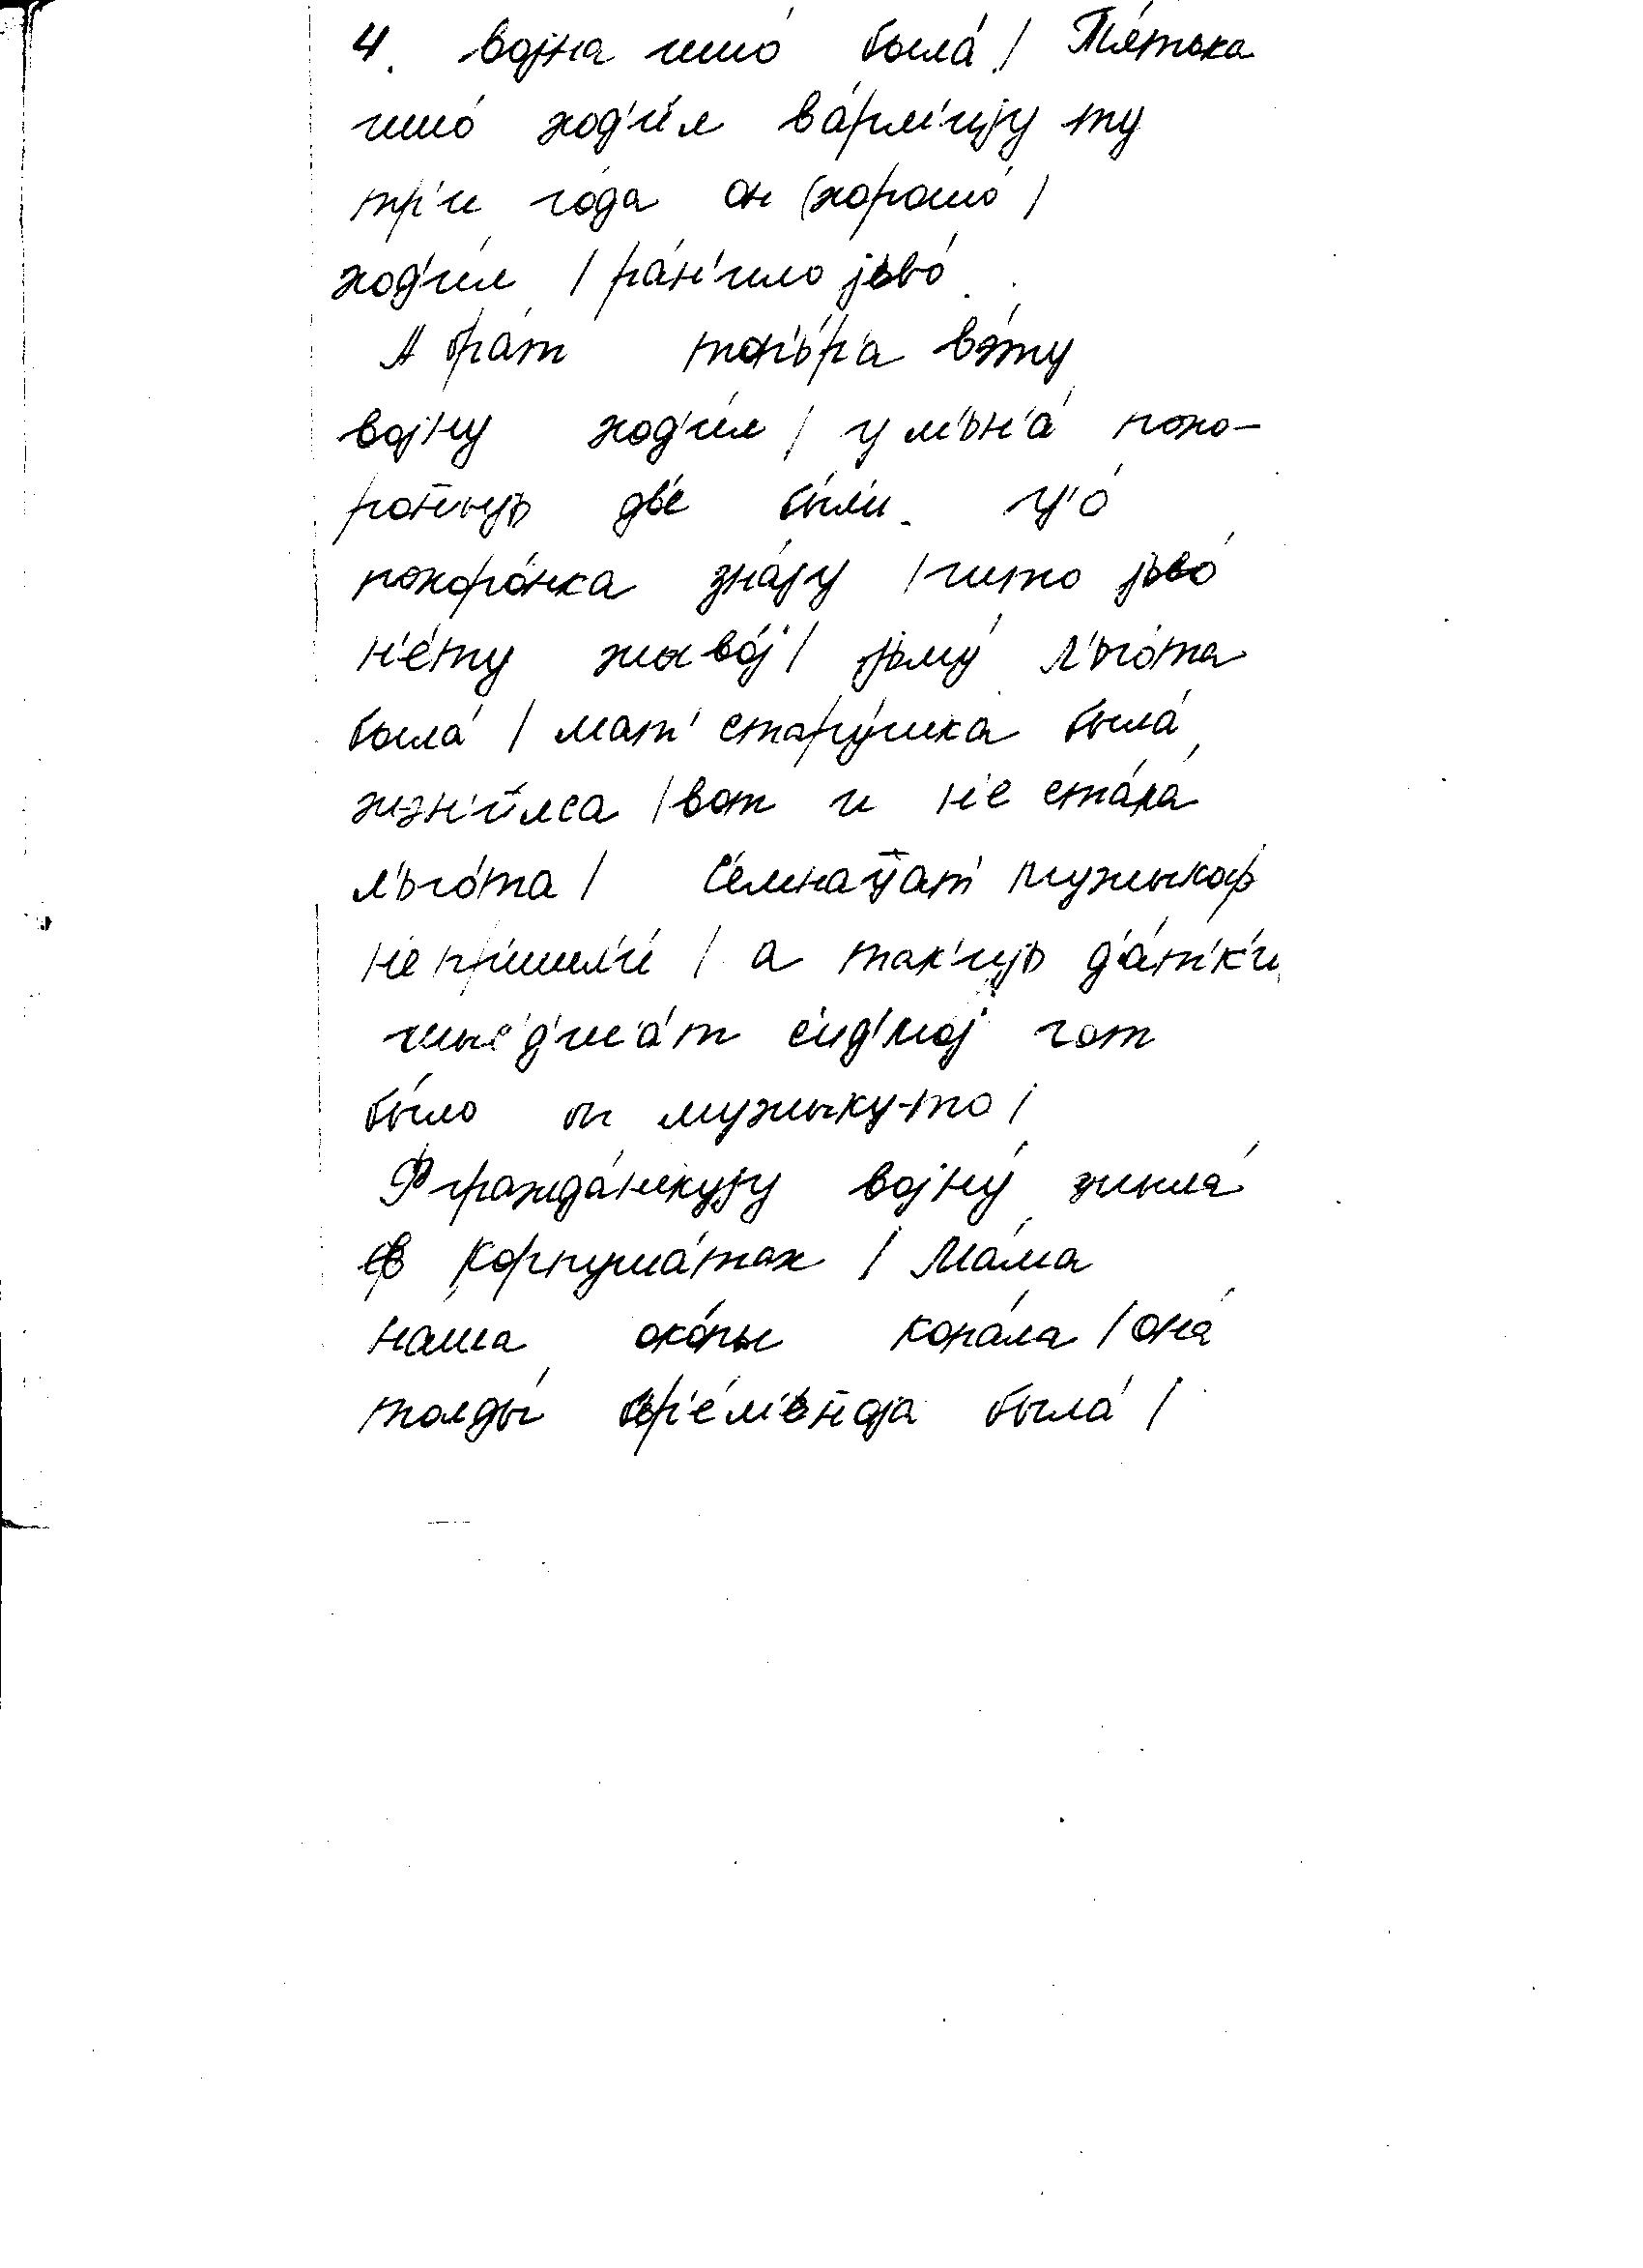 4. војна ишо́ была́ / Тя́тька
ишо́ ход'и́л ва́рм'ијy ту
тр'и го́да он (хорошо́ /
ход'и́л / ра́н'ило јьво́.
А бра́т топ'ьр'а вэ́ту
војну ход'и́л / у м'ьн'а́ похо-
дв'е бы́ли. ц'о́
похоро́нка зна́јy / што јьво́
н'е́ту жыво́ј / јьму́ л'ьго́та
была́ / мат' стару́шка была́
жэн'и́лса / вот и н'е ста́ла́
л'ьго́та / с'емнац̄ат' мужыкоф
н'е пр'ишл'и́ / а так'ијь д'а́т'к'и
шыс'д'ис'а́т с'ид'мој гот
бы́ло мужыку-то /
Ф гражда́нскујy војну́ жыла́
в Корпуша́тах / Ма́ма
на́ша око́пы копа́ла / она́
толды́ бр'е́м'ьн̄оја была́ /